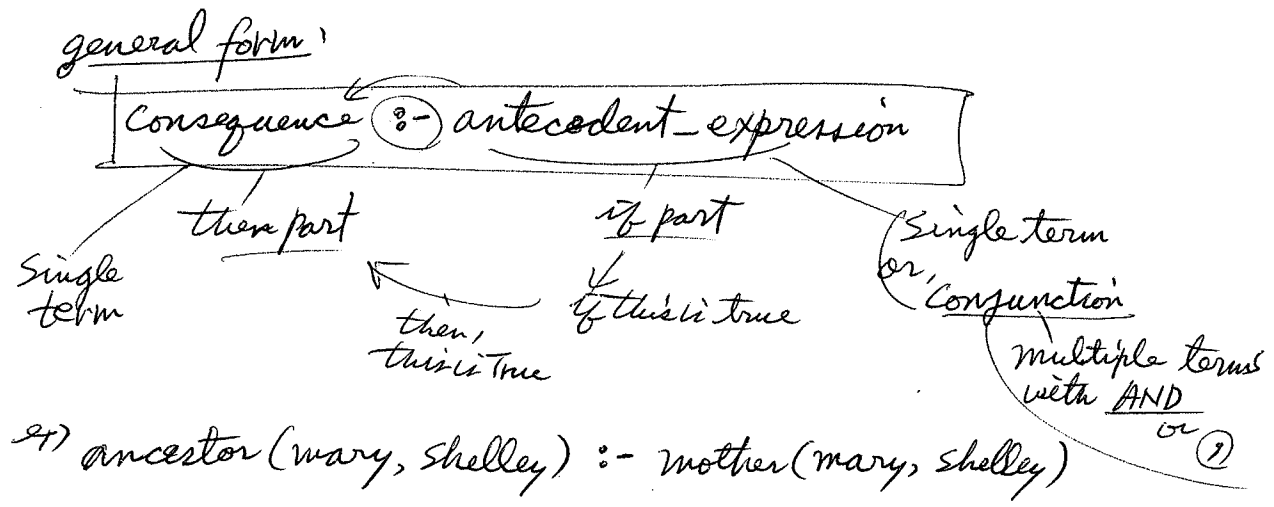 general form:
consequence :- antecedent_expression
then part
if part
single term
or,
conjunction
single
term
if this is true
then,
this is True
multiple terms
with AND
or ,
ex) ancestor (mary, shelley) :- mother (mary, shelley)